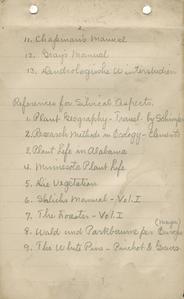 11. Chapman's Manual
12. Gray's Manual
13.
References for Silvical Aspects.
1. Plant Geography - Travel - by Schimper
2. Research Methods in Ecology - Clements
3. Plant Life in Alabama
4. Minnesota Plant Life
5. Die Vegetation
6. Manual - Vol. I
7. The Forester - Vol. I
8. Wald und Parkbaume für Europa (Mayr)
9. The White Pine - Pinchot & Graves